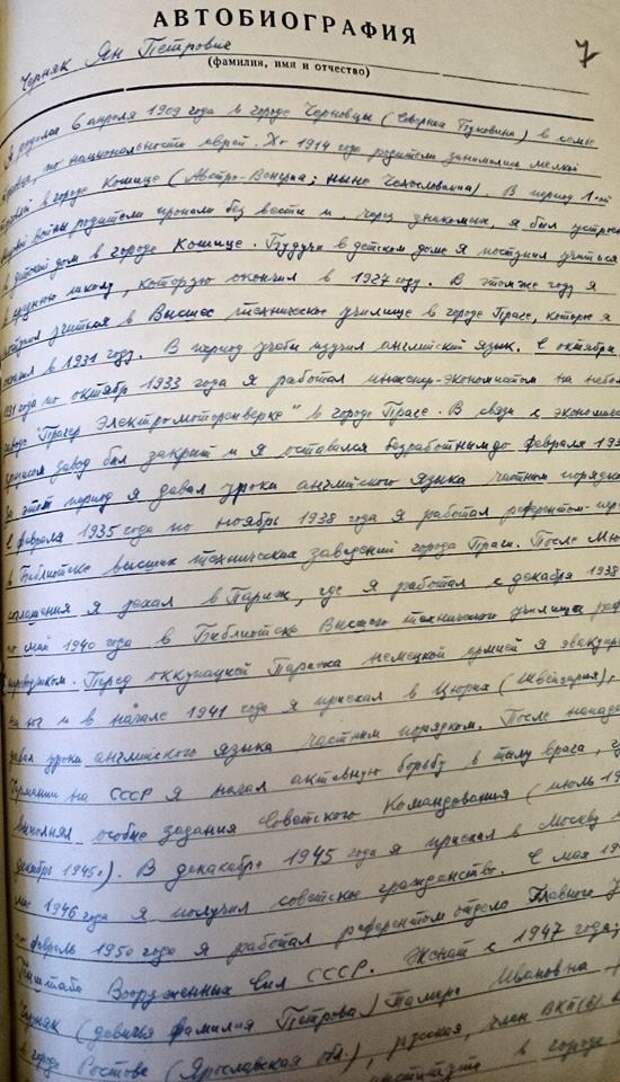 АВТОБИОГРАФИЯ
7
Черняк Ян Петрович
(фамилия, имя и отчество)
Я родился 6 апреля 1909 года в городе Черновцы (Северная Буковина) в семье
по национальности еврей. До 1914 года родители занимались мелкой
в городе Кошице (Австро-Венгрия; ныне Чехословакия). В период 1-ой
войны родители пропали без вести и, через знакомых, я был устроен
в детский дом в городе Кошице. Будучи в детском доме я поступил учиться
школу, которую окончил в 1927 году. В этом же году я
учиться в Высшее техническое училище в городе Праге, которое я
в 1931 году. В период учебы изучил английский язык. С октября
1931 года по октябрь 1933 года я работал инженер-экономистом на
заводе "Прагер Электромоторенверке" в городе Праге. В связи с
завод был закрыт и я оставался безработным до февраля
За этот период я давал уроки английского языка частным
С февраля 1935 года по ноябрь 1938 года я работал
в Библиотеке высших технических заведений города Праги. После
соглашения я уехал в Париж, где я работал с декабря 1938
по май 1940 года в Библиотеке Высшего технического училища
Перед оккупацией Парижа немецкой армией я
на юг и в начале 1941 года я приехал в Цюрих (Швейцария),
давал уроки английского языка частным порядком. После
Германии на СССР я начал активную борьбу в тылу врага,
выполнял особые задания Советского Командования (июль
декабрь 1945г). В декакабре 1945 года я приехал в Москву
1946 года я получил советское гражданство. С мая
по февраль 1950 года я работал референтом отдела Главного
Генштаба Вооруженных Сил СССР. Женат с 1947 года;
Черняк (девичья фамилия Петрова) Тамара Ивановна
в городе Ростове (Ярославская обл.), русская, член ВКП(б)
институте в городе